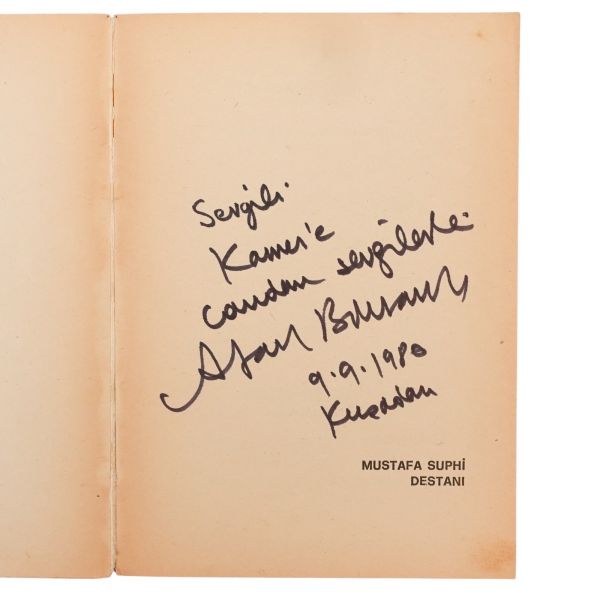 Sevgili
Kamer'e
candan sevgilerle.
Ataol Behramoğlu
9.9.1980
Kuşadası
MUSTAFA SUPHİ
DESTANI